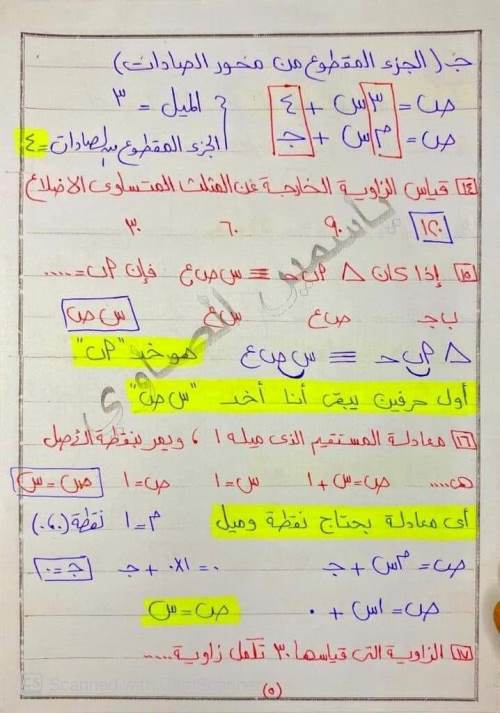 جـ (الجزء المقطوع من محور الصادات)
ص = ٣س + ٤ الميل = ٣
ص = م س + جـ الجزء المقطوع من الصادات = ٤
١٤ قياس الزاوية الخارجة عن المثلث المتساوى الاضلاع
١٢٠ ٩٠ ٦٠ ٣٠
١٥ إذا كان △ ٢ب حـ ≡ س ص ع فإن ٢ب = .....
ب جـ ص ع س ع س ص
△ ٢ب حـ ≡ س ص ع هو خد "٢ب"
أول حرفين يبقى أنا أخد "س ص"
١٦ معادلة المستقيم الذى ميله ١ ، ويمر بنقطة الأصل
هى .... ص = س + ١ س = ١ ص = ١ ص = س
أى معادلة بحتاج نقطة وميل م = ١ نقطة (٠،٠)
ص = م س + جـ ٠ = ١×٠ + جـ جـ = ٠
ص = ١س + ٠ ص = س
١٧ الزاوية التى قياسها ٣٠ تكمل زاوية .....
(٥)
ياسمين الصاوي
CS Scanned with CamScanner